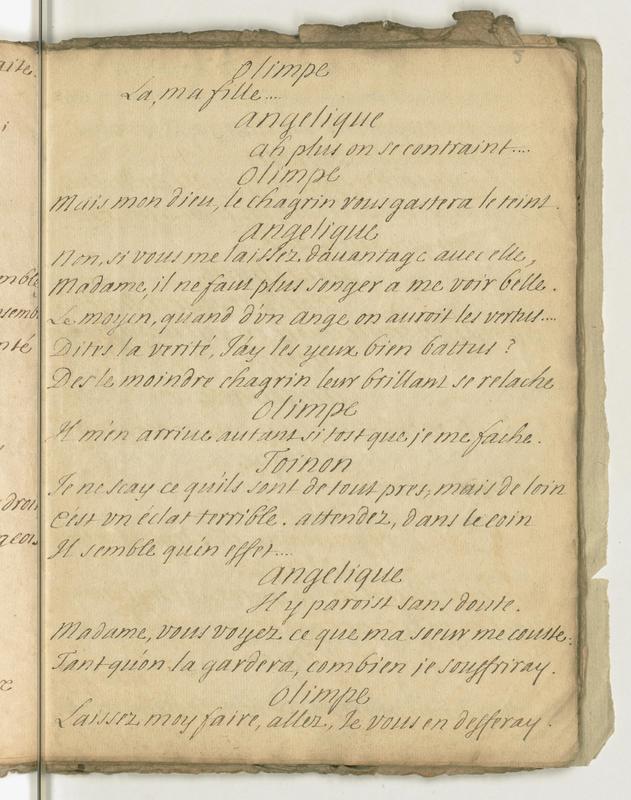 5
Olimpe
La, ma fille....
angelique
ah plus on se contraint....
Olimpe
Mais mon dieu, le chagrin vous gastera le teint.
angelique
Non, si vous me laissez dauantage auec elle,
Madame, il ne faut plus songer a me voir belle.
Le moyen, quand d'vn ange on auroit les vertus....
Dites la verité, J'ay les yeux bien battus ?
Des le moindre chagrin leur brillant se relache
Olimpe
Il m'en arriue autant si tost que je me fache.
Toinon
Je ne scay ce qu'ils sont de tout pres, mais de loin
C'est vn éclat terrible. attendez, dans le coin
Il semble qu'en effet....
angelique
Il y paroist sans doute.
Madame, vous voyez ce que ma soeur me couste:
Tant qu'on la gardera, combien je souffriray.
Olimpe
Laissez moy faire, allez, Je vous en defferay.